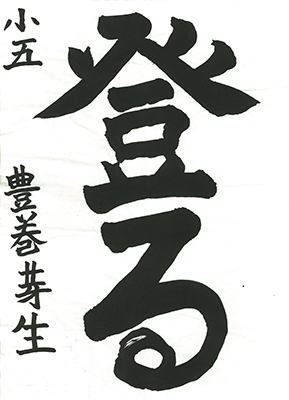 登る
小五
豊巻芽生